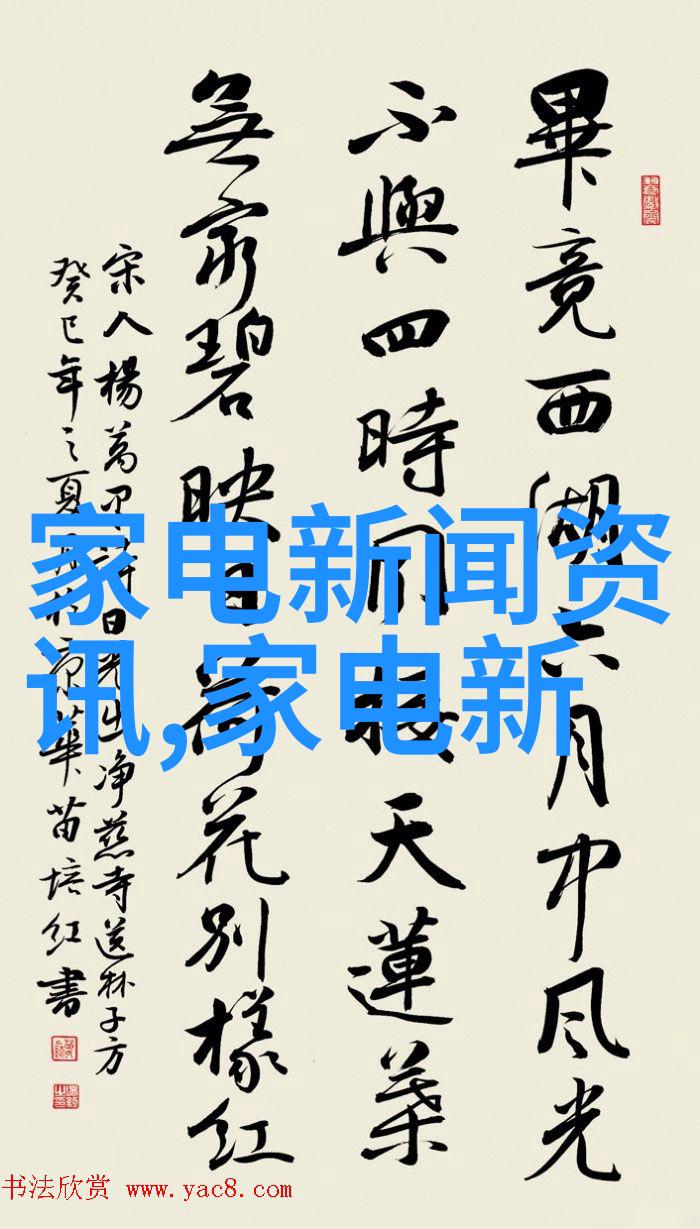 畢竟西湖六月中風光
不與四時同接天蓮葉
無窮碧映日荷花別樣紅
宋人楊萬里詩曰曉出净慈寺送林子方
癸巳年之夏月於京華苗培紅書
家电新闻资
讯,家电新
书法欣赏 www.yac8.com